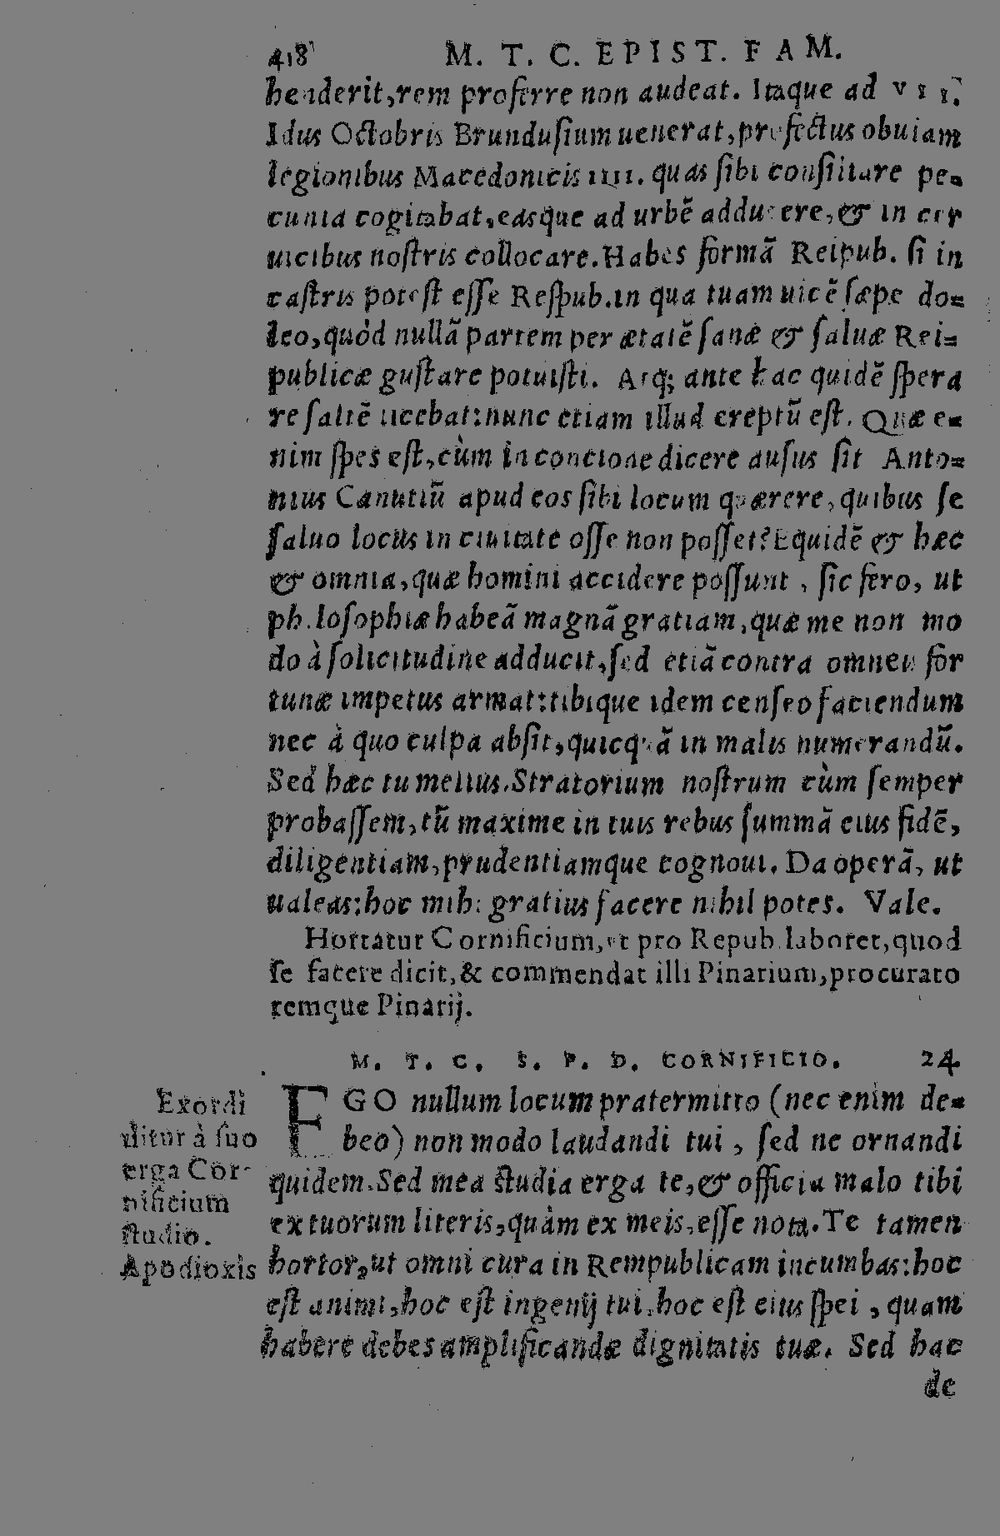 418 M. T. C. EPIST. FAM.
henderit, rem proferre non audeat. Itaque ad VII.
Idus Octobris Brundusium uenerat, profectus obuiam
legionibus Macedonicis IIII. quas sibi consiliare pe-
cunia cogitabat, easque ad urbē adducere, & in cer
uicibus nostris collocare. Habes formā Reipub. si in
castris potest esse Respub. in qua tuam uicē sæpe do=
leo, quòd nullā partem per ætatē sanæ & saluæ Rei=
publicæ gustare potuisti. Atq; ante hac quidē spera
re saltē licebat: nunc etiam illud ereptū est. Quæ e=
nim spes est, cùm in concione dicere ausus sit Anto=
nius Canutiū apud eos sibi locum quærere, quibus se
saluo locus in ciuitate esse non posset? Equidē & hæc
& omnia, quæ homini accidere possunt, sic fero, ut
philosophiæ habeā magnā gratiam, quæ me non mo
do à solicitudine adducit, sed etiā contra omneis for
tunæ impetus armat: tibique idem censeo faciendum
nec à quo culpa absit, quicquā in malis numerandū.
Sed hæc tu melius. Stratorium nostrum cùm semper
probassem, tū maxime in tuis rebus summā eius fidē,
diligentiam, prudentiamque cognoui. Da operā, ut
ualeas: hoc mihi gratius facere nihil potes. Vale.
Hortatur Cornificium, vt pro Repub. laboret, quod
se facere dicit, & commendat illi Pinarium, procurato
remque Pinarij.
M. T. C. S. P. D. CORNIFICIO. 24
EGO nullum locum pratermitto (nec enim de=
beo) non modo laudandi tui, sed ne ornandi
quidem. Sed mea studia erga te, & officia malo tibi
ex tuorum literis, quàm ex meis, esse nota. Te tamen
hortor, ut omni cura in Rempublicam incumbas: hoc
est animi, hoc est ingenij tui, hoc est eius spei, quam
habere debes amplificandæ dignitatis tuæ. Sed hac
de
Exordi
ditur à suo
erga Cor-
nificium
studio.
Apodioxis